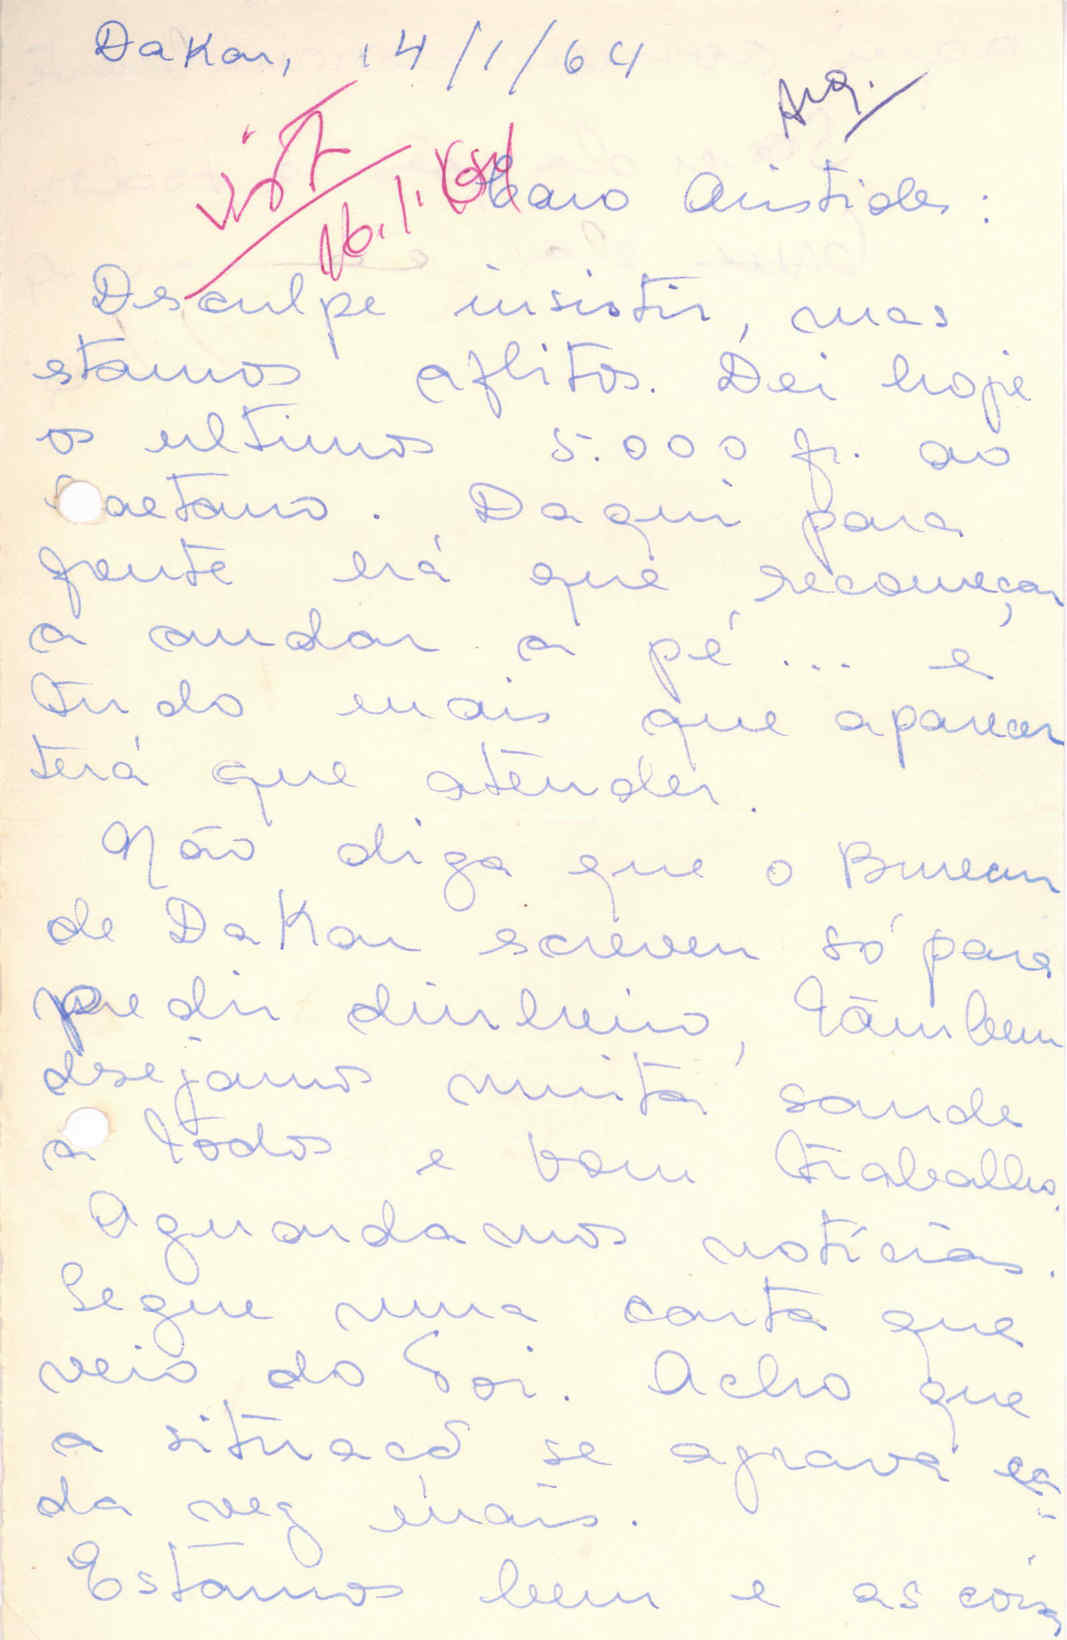 Dakar, 14/1/64
Arq.
Visto
16.1.64
Caro Aristides:
Desculpe insistir, mas
estamos aflitos. Dei hoje
os ultimos 5.000 fr. ao
Caetano. Daqui para
frente terá que recomeçar
a andar a pé... e
tudo mais que aparecer
terá que atender.
Não diga que o Bureau
de Dakar escreveu só para
pedir dinheiro, tambem
desejamos muita saude
a todos e bom trabalho.
Aguardamos notícias.
Segue uma carta que
veio do Goi. Acho que
a situação se agrava ca-
da vez mais.
Estamos bem e as coisas